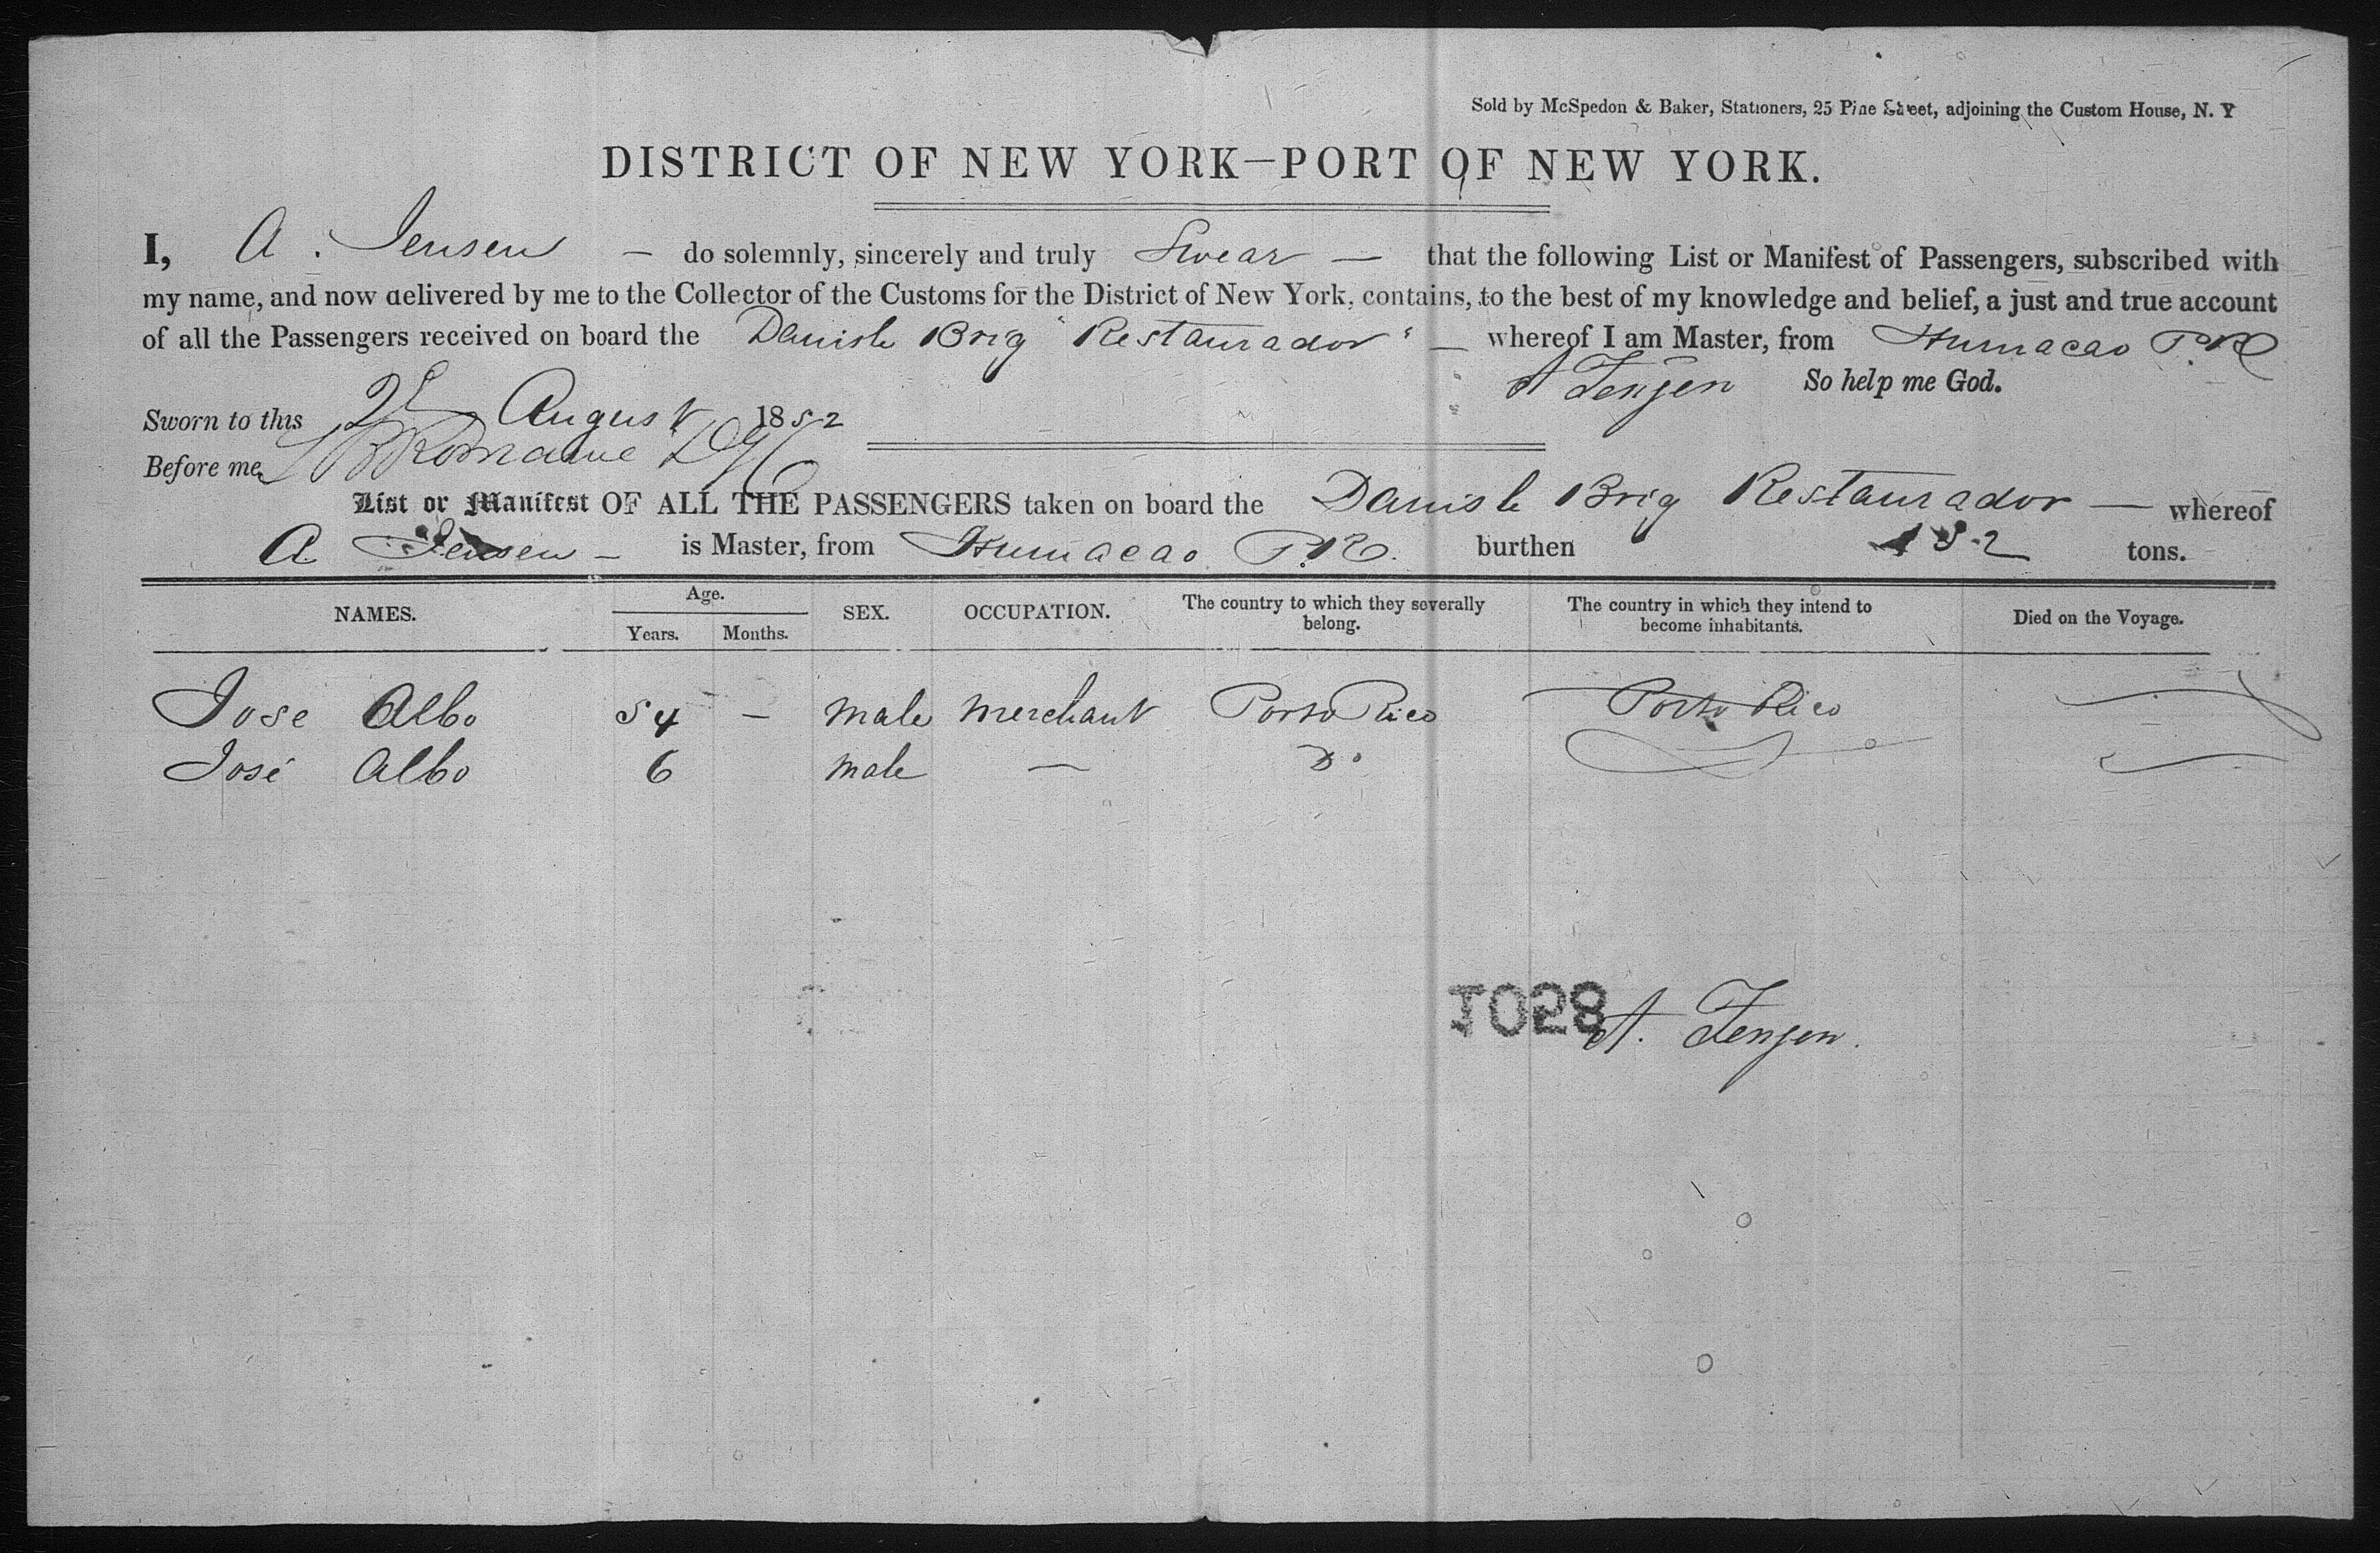 Sold by McSpedon & Baker, Stationers, 25 Pine Street, adjoining the Custom House, N. Y
DISTRICT OF NEW YORK—PORT OF NEW YORK.
I, A. Jensen — do solemnly, sincerely and truly Swear — that the following List or Manifest of Passengers, subscribed with
my name, and now delivered by me to the Collector of the Customs for the District of New York, contains, to the best of my knowledge and belief, a just and true account
of all the Passengers received on board the Danish Brig "Restaurador" — whereof I am Master, from Humacao P.R
A Jensen So help me God.
Sworn to this August 1852
Before me,
List or Manifest OF ALL THE PASSENGERS taken on board the Danish Brig Restaurador — whereof
A. Jensen — is Master, from Humacao P.R. burthen 152 tons.
NAMES. Age. Years. Months. SEX. OCCUPATION. The country to which they severally belong. The country in which they intend to become inhabitants. Died on the Voyage.
Jose Albo 54 — male merchant Porto Rico Porto Rico
José Albo 6 male — Do
1028
A. Jensen.